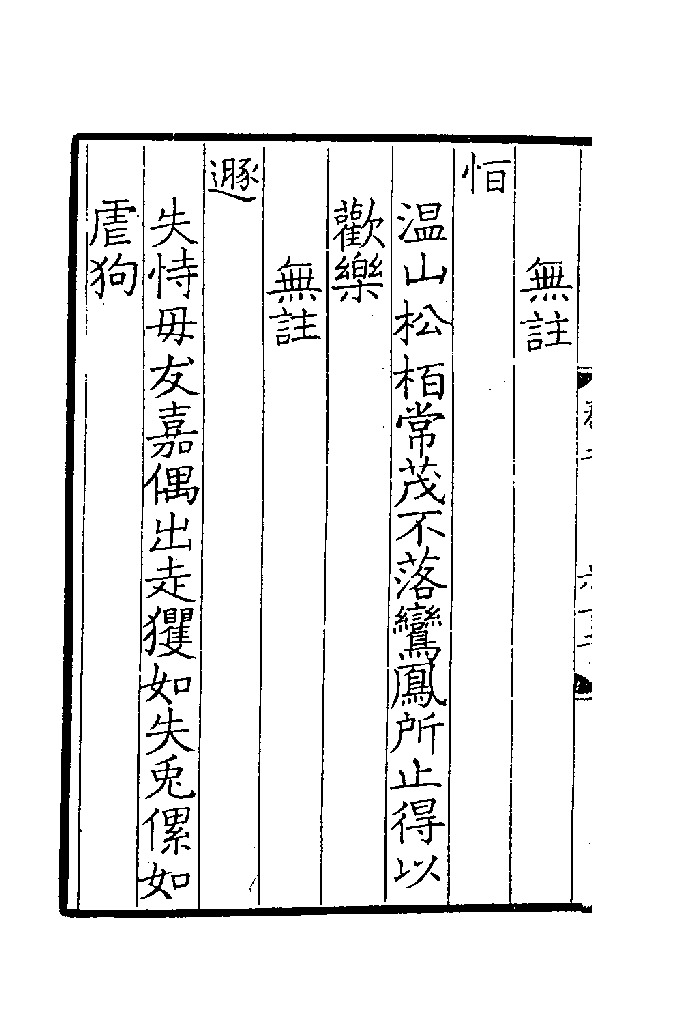 無註
恒
温山松栢常茂不落鸞鳳所止得以
歡樂
無註
遯
失恃毋友嘉偶出走玃如失兔傫如
虐狗